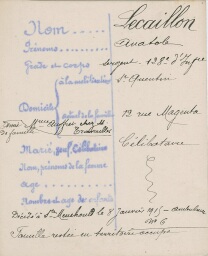 Nom Lecaillon
Prénoms Anatole
Grade et corps Sergent 138e d'Infie
à la mobilisation
St Quentin
Domicile
actuel de la famille 13 rue Magenta
Mme chez M.
de famille
Marié, veuf Célibataire Célibataire
Nom, prénoms de la femme
Age
Nombre et age des enfants
Décédé à Ste Menehould le 8 Janvier 1915 - ambulance
No 6
Famille restée en territoire occupé